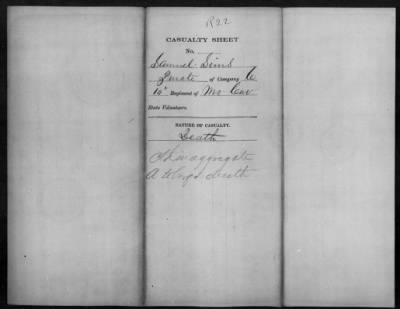 R22
CASUALTY SHEET
No.
Samuel Sims
Private of Company A
10" Regiment of Mo Cav
State Volunteers.
NATURE OF CASUALTY.
Death
aggregate
death